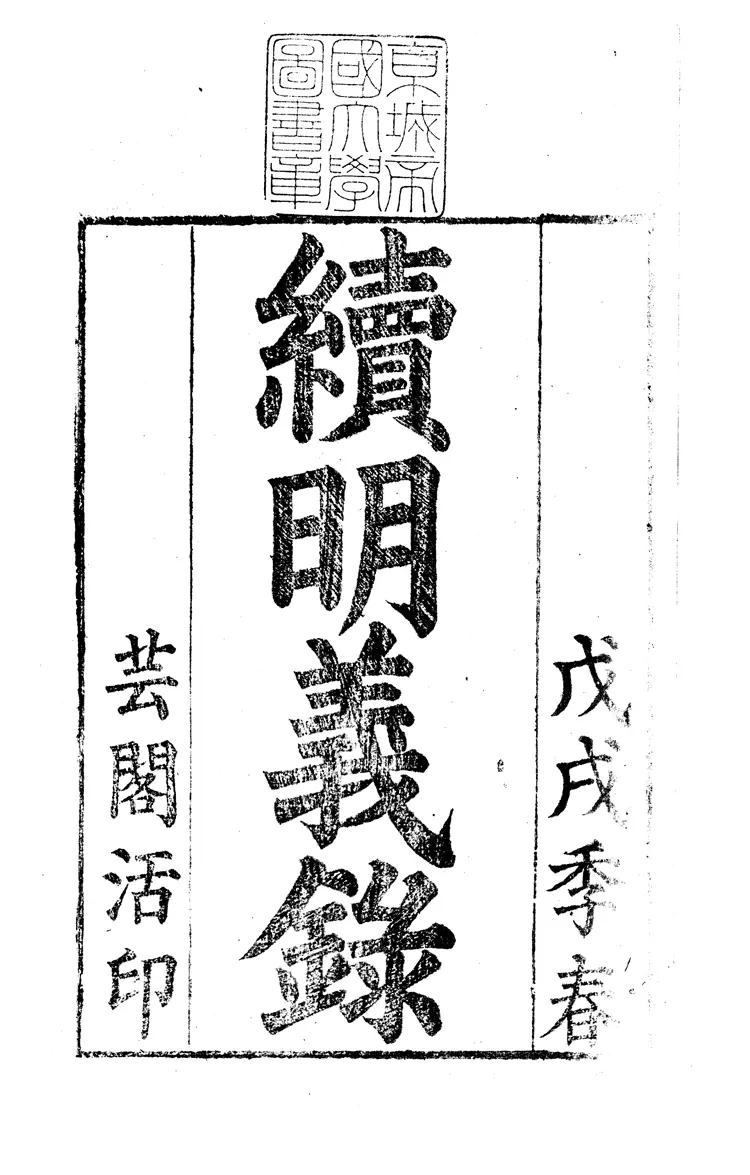 京城帝
國大學
圖書章
戊戌季春
續明義錄
芸閣活印